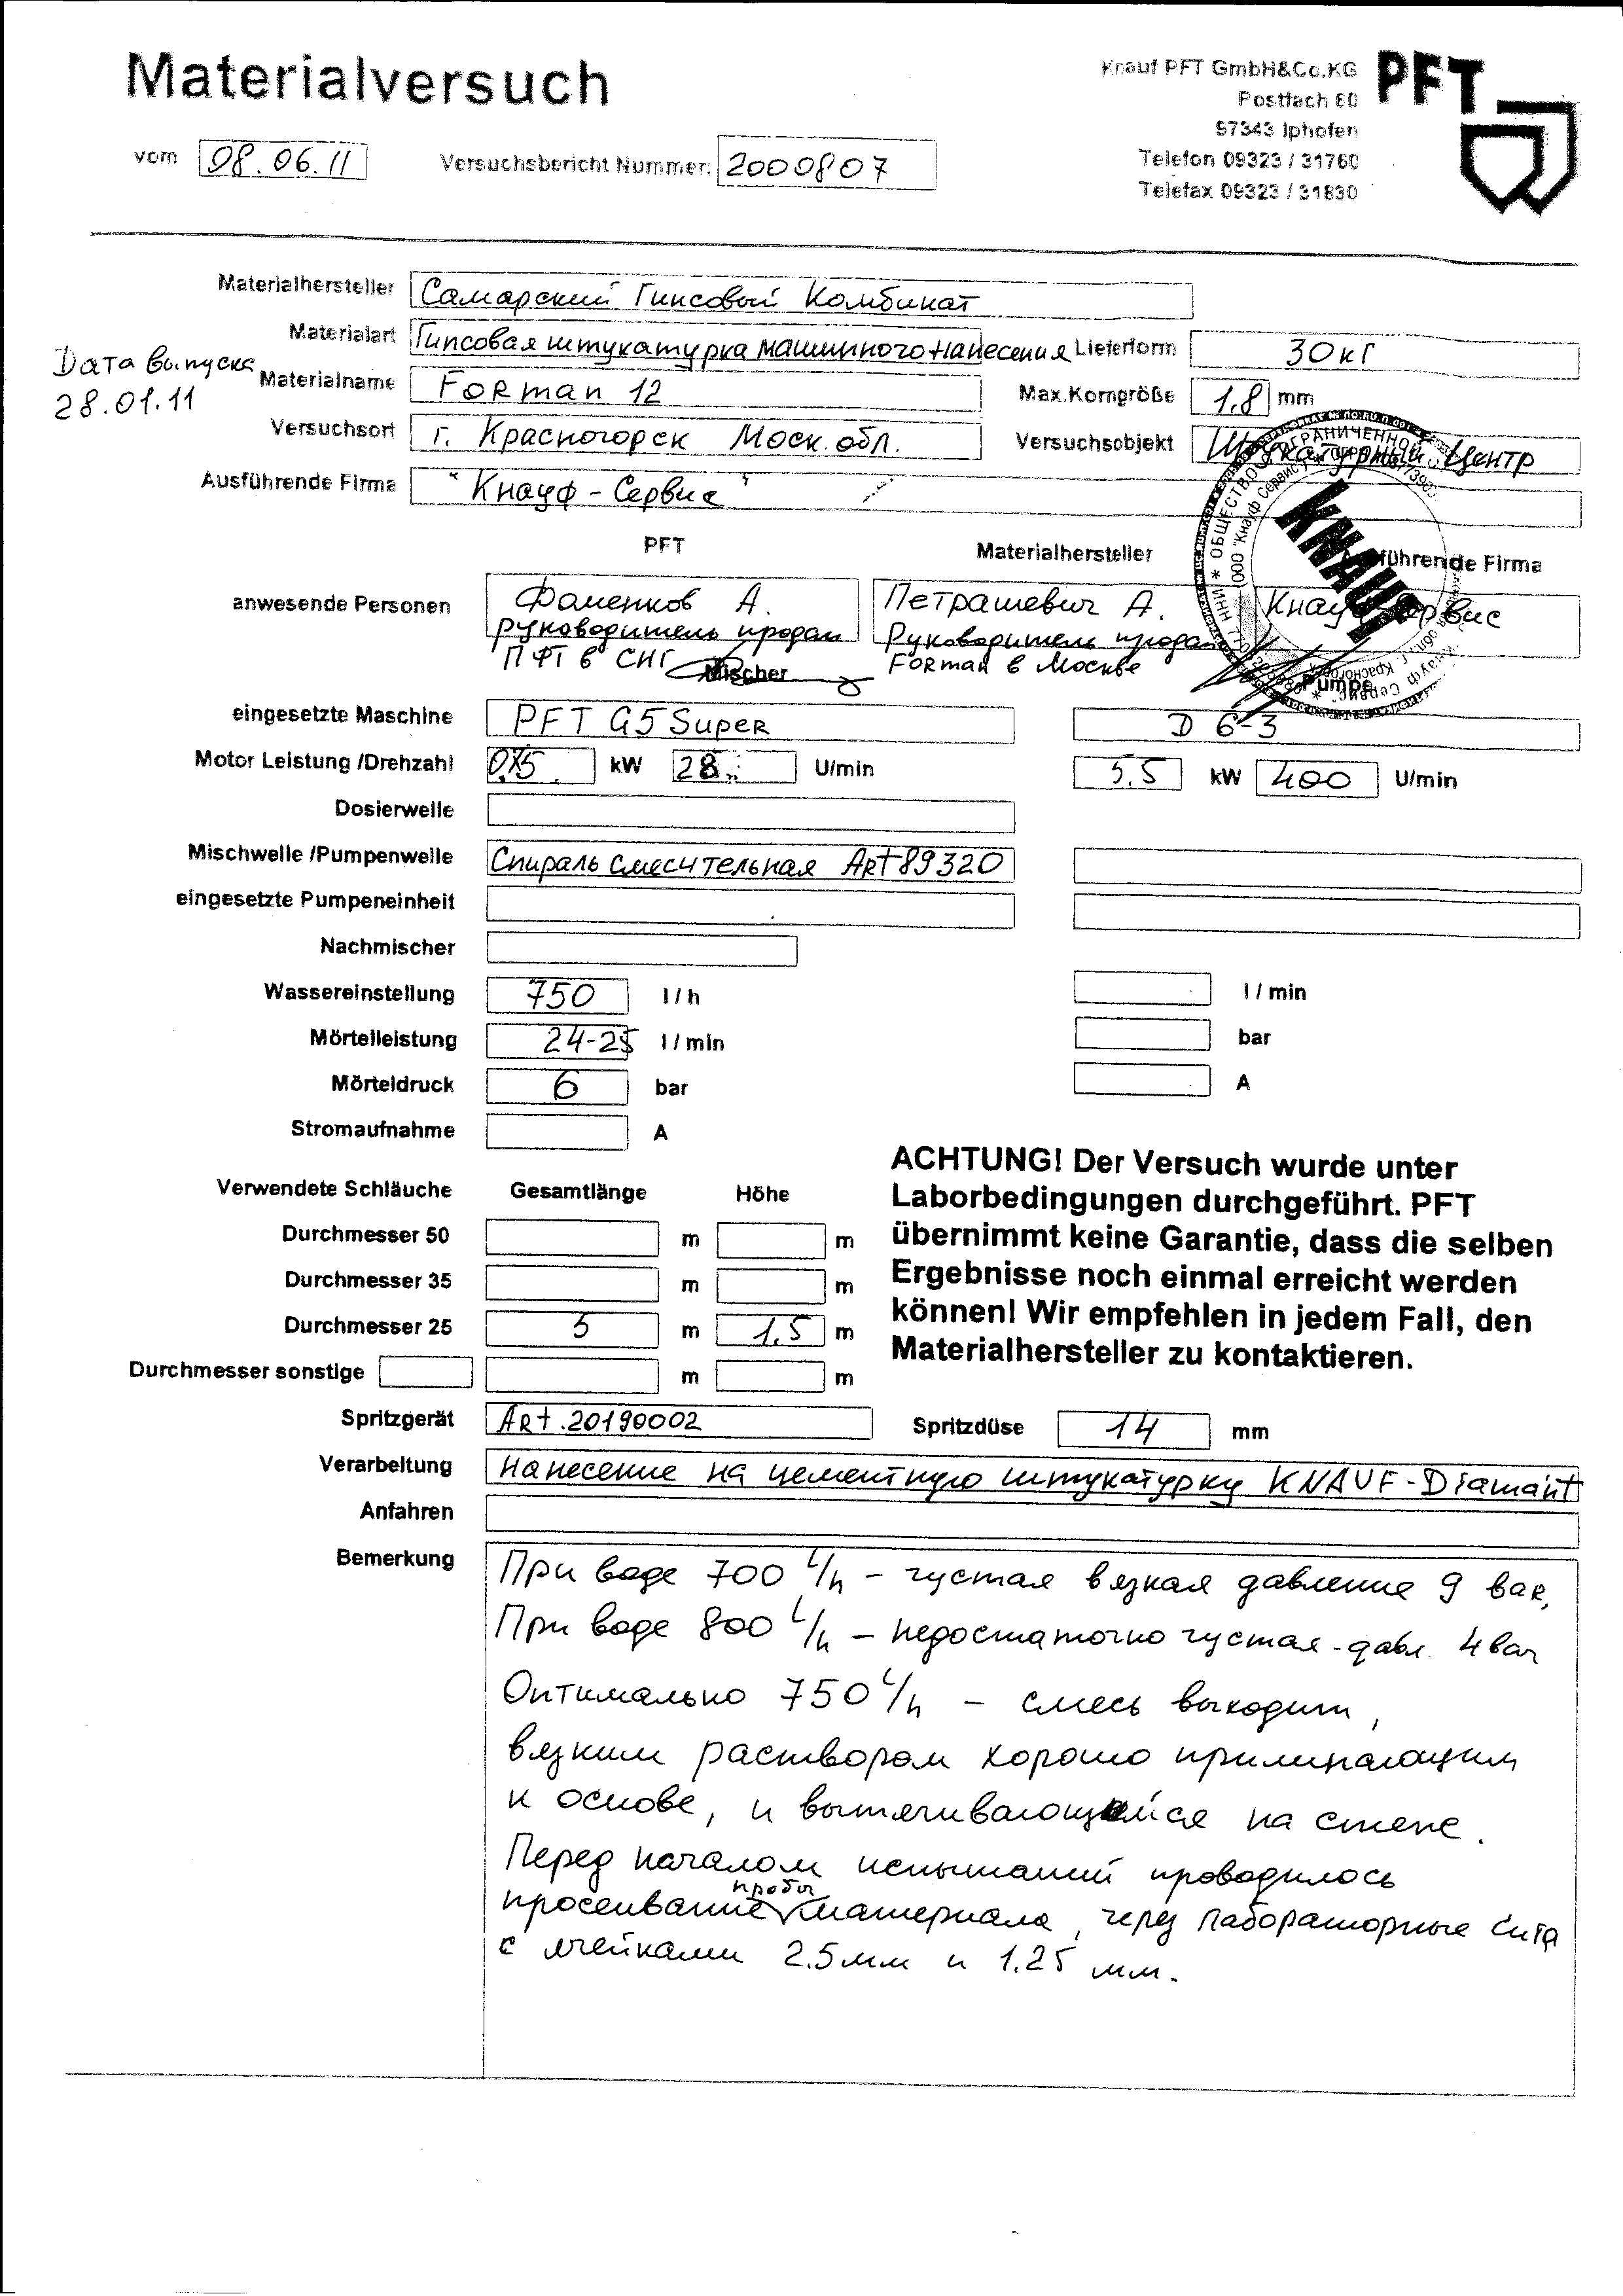 Materialversuch
Knauf PFT GmbH&Co.KG
Postfach 60
97343 Iphofen
Telefon 09323 / 31760
Telefax 09323 / 31830
PFT
vom 08.06.11 Versuchsbericht Nummer: 2000807
Materialhersteller Самарский Гипсовый Комбинат
Materialart Гипсовая штукатурка машинного нанесения Lieferform 30кг
Дата выпуска
28.01.11
Materialname Forman 12 Max.Korngröße 1,8 mm
Versuchsort г. Красногорск Моск. обл. Versuchsobjekt Штукатурный Центр
Ausführende Firma "Кнауф - Сервис"
KNAUF
PFT Materialhersteller Ausführende Firma
anwesende Personen Фоменков А. Петрашевич А. Кнауф Сервис
руководитель продаж Руководитель продаж
ПФТ в СНГ Forman в Москве
Mischer Pumpe
eingesetzte Maschine PFT G5 Super D 6-3
Motor Leistung /Drehzahl 0,75 kW 28 U/min 5.5 kW 400 U/min
Dosierwelle
Mischwelle /Pumpenwelle Спираль смесительная Art 89320
eingesetzte Pumpeneinheit
Nachmischer
Wassereinstellung 750 l / h l / min
Mörtelleistung 24-25 l / min bar
Mörteldruck 6 bar A
Stromaufnahme A
Verwendete Schläuche Gesamtlänge Höhe
Durchmesser 50 m m
Durchmesser 35 m m
Durchmesser 25 5 m 1,5 m
Durchmesser sonstige m m
ACHTUNG! Der Versuch wurde unter
Laborbedingungen durchgeführt. PFT
übernimmt keine Garantie, dass die selben
Ergebnisse noch einmal erreicht werden
können! Wir empfehlen in jedem Fall, den
Materialhersteller zu kontaktieren.
Spritzgerät Art.20190002 Spritzdüse 14 mm
Verarbeitung Нанесение на цементную штукатурку KNAUF-Diamant
Anfahren
Bemerkung При воде 700 L/h - густая вязкая давление 9 bar,
При воде 800 L/h - недостаточно густая - давл. 4 bar
Оптимально 750 L/h - смесь выходит,
вязким раствором хорошо прилипающим
к основе, и вытягивающейся на стене.
Перед началом испытаний проводилось
просеивание пробы материала, через лабораторные сита
с ячейками 2.5мм и 1.25 мм.